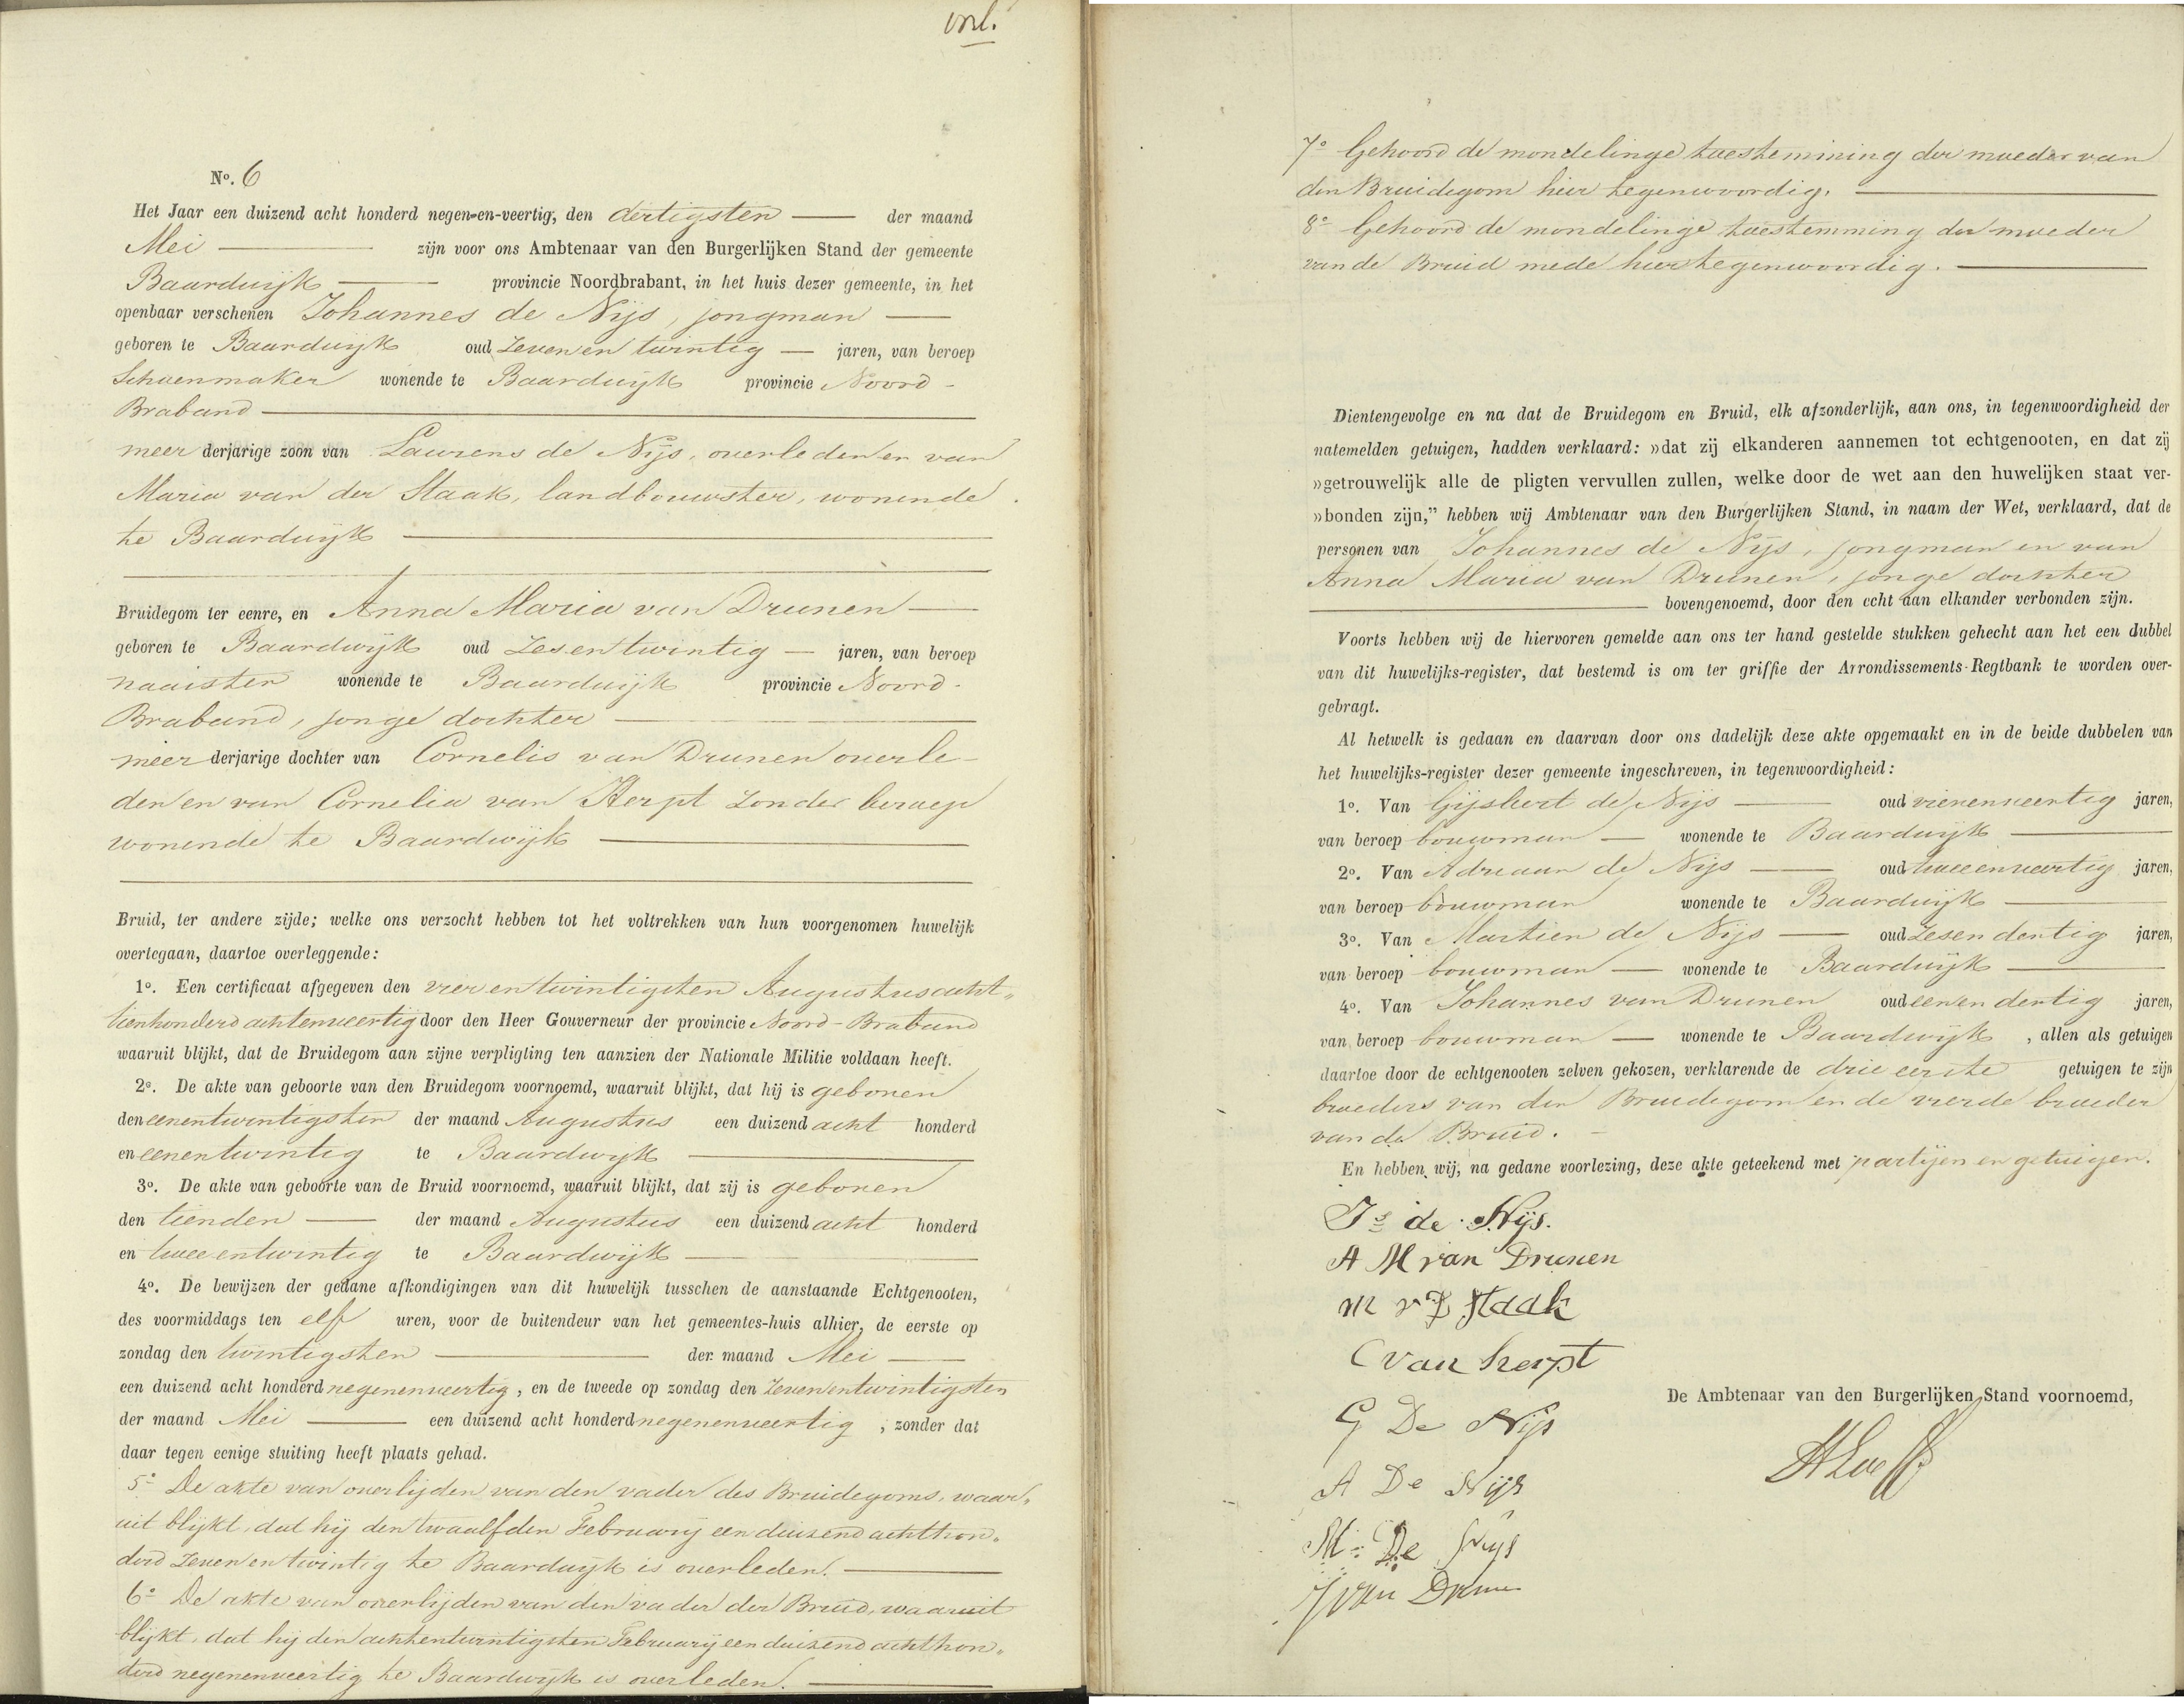 vrl.
No. 6
Het Jaar een duizend acht honderd negen-en-veertig, den dertigsten — der maand
Mei — zijn voor ons Ambtenaar van den Burgerlijken Stand der gemeente
Baardwijk — provincie Noordbrabant, in het huis dezer gemeente, in het
openbaar verschenen Johannes de Nijs, jongman —
geboren te Baardwijk oud Zeven en twintig — jaren, van beroep
Schoenmaker wonende te Baardwijk provincie Noord-
Braband —
meer derjarige zoon van Laurens de Nijs, overleden en van
Maria van der Staak, landbouwster, wonende
te Baardwijk —
Bruidegom ter eenre, en Anna Maria van Drunen —
geboren te Baardwijk oud Zesentwintig — jaren, van beroep
naaister wonende te Baardwijk provincie Noord-
Braband, jonge dochter —
meer derjarige dochter van Cornelis van Drunen overle-
den en van Cornelia van Herpt zonder beroep
wonende te Baardwijk —
Bruid, ter andere zijde; welke ons verzocht hebben tot het voltrekken van hun voorgenomen huwelijk
overtegaan, daartoe overleggende:
1o. Een certificaat afgegeven den vier en twintigsten Augustus acht-
tienhonderd achtenveertig door den Heer Gouverneur der provincie Noord-Braband
waaruit blijkt, dat de Bruidegom aan zijne verpligting ten aanzien der Nationale Militie voldaan heeft.
2o. De akte van geboorte van den Bruidegom voornoemd, waaruit blijkt, dat hij is geboren
den eenentwintigsten der maand Augustus een duizend acht honderd
en eenentwintig te Baardwijk —
3o. De akte van geboorte van de Bruid voornoemd, waaruit blijkt, dat zij is geboren
den tienden — der maand Augustus een duizend acht honderd
en tweeentwintig te Baardwijk —
4o. De bewijzen der gedane afkondigingen van dit huwelijk tusschen de aanstaande Echtgenooten,
des voormiddags ten elf uren, voor de buitendeur van het gemeentes-huis alhier, de eerste op
zondag den twintigsten — der maand Mei —
een duizend acht honderd negenenveertig, en de tweede op zondag den Zevenentwintigsten
der maand Mei — een duizend acht honderd negenenveertig, zonder dat
daar tegen eenige stuiting heeft plaats gehad.
5o De akte van overlijden van den vader des Bruidegoms, waar-
uit blijkt, dat hij den twaalfden February een duizend achthon-
derd Zeven en twintig te Baardwijk is overleden. —
6o De akte van overlijden van den vader der Bruid, waaruit
blijkt, dat hij den achtentwintigsten February een duizend achthon-
derd negenenveertig te Baardwijk is overleden. —
7o Gehoord de mondelinge toestemming der moeder van
den Bruidegom hier tegenwoordig. —
8o Gehoord de mondelinge toestemming der moeder
van de Bruid mede hier tegenwoordig. —
Dientengevolge en na dat de Bruidegom en Bruid, elk afzonderlijk, aan ons, in tegenwoordigheid der
natemelden getuigen, hadden verklaard: »dat zij elkanderen aannemen tot echtgenooten, en dat zij
»getrouwelijk alle de pligten vervullen zullen, welke door de wet aan den huwelijken staat ver-
»bonden zijn,” hebben wij Ambtenaar van den Burgerlijken Stand, in naam der Wet, verklaard, dat de
personen van Johannes de Nijs, jongman en van
Anna Maria van Drunen, jonge dochter
— bovengenoemd, door den echt aan elkander verbonden zijn.
Voorts hebben wij de hiervoren gemelde aan ons ter hand gestelde stukken gehecht aan het een dubbel
van dit huwelijks-register, dat bestemd is om ter griffie der Arrondissements-Regtbank te worden over-
gebragt.
Al hetwelk is gedaan en daarvan door ons dadelijk deze akte opgemaakt en in de beide dubbelen van
het huwelijks-register dezer gemeente ingeschreven, in tegenwoordigheid:
1o. Van Gijsbert de Nijs — oud vierenveertig jaren,
van beroep bouwman — wonende te Baardwijk —
2o. Van Adriaan de Nijs — oud tweeenveertig jaren,
van beroep bouwman wonende te Baardwijk —
3o. Van Martien de Nijs — oud Zesendertig jaren,
van beroep bouwman — wonende te Baardwijk —
4o. Van Johannes van Drunen oud eenendertig jaren,
van beroep bouwman — wonende te Baardwijk, allen als getuigen
daartoe door de echtgenooten zelven gekozen, verklarende de drie eerste getuigen te zijn
broeders van den Bruidegom en de vierde broeder
van de Bruid. —
En hebben wij, na gedane voorlezing, deze akte geteekend met partijen en getuigen.
Js de Nijs.
A M van Drunen
M v D Staak
C van herpt
De Ambtenaar van den Burgerlijken Stand voornoemd,
G De Nijs
A De Nijs
M: De Nijs
J van Drunen